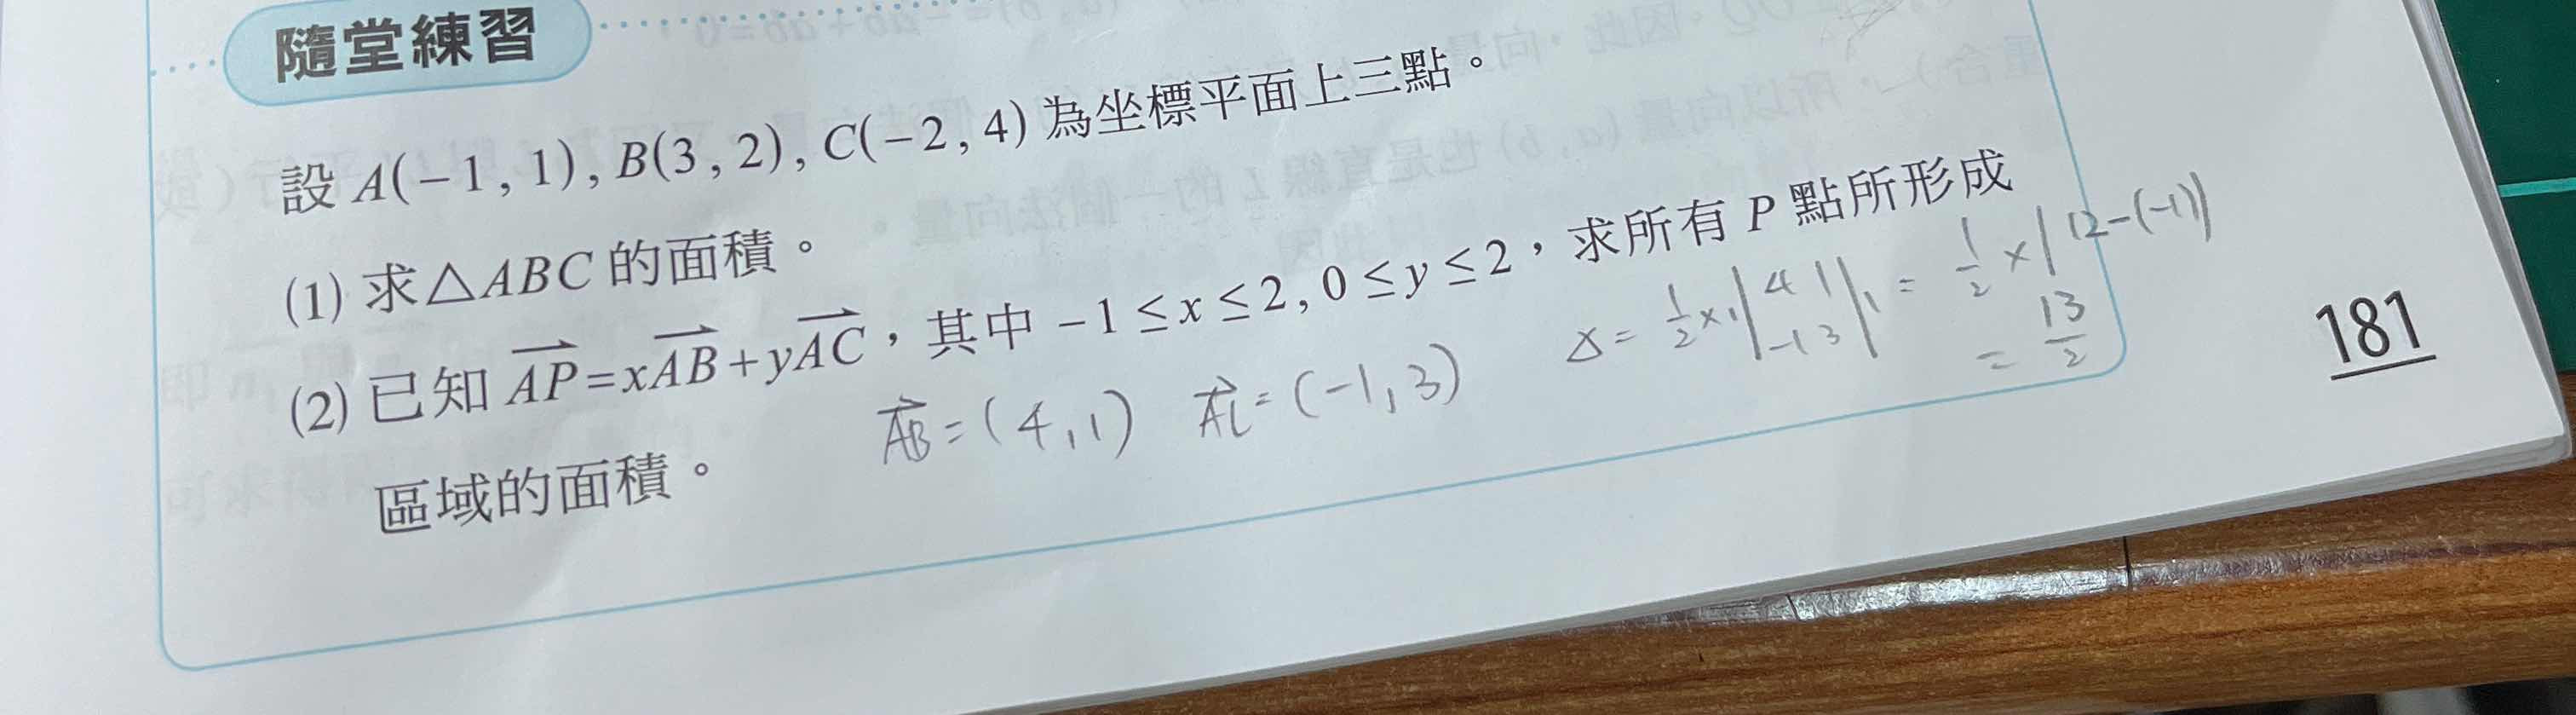 隨堂練習
設 A(−1, 1), B(3, 2), C(−2, 4) 為坐標平面上三點。
(1) 求△ABC 的面積。
(2) 已知 $\overrightarrow{AP}=x\overrightarrow{AB}+y\overrightarrow{AC}$,其中 −1 ≤ x ≤ 2, 0 ≤ y ≤ 2,求所有 P 點所形成
區域的面積。
$\overrightarrow{AB}=(4,1)$ $\overrightarrow{AC}=(-1,3)$
$\Delta=\frac{1}{2}\times|\begin{vmatrix}4&1\\-1&3\end{vmatrix}|=\frac{1}{2}\times|12-(-1)|$
$=\frac{13}{2}$
181